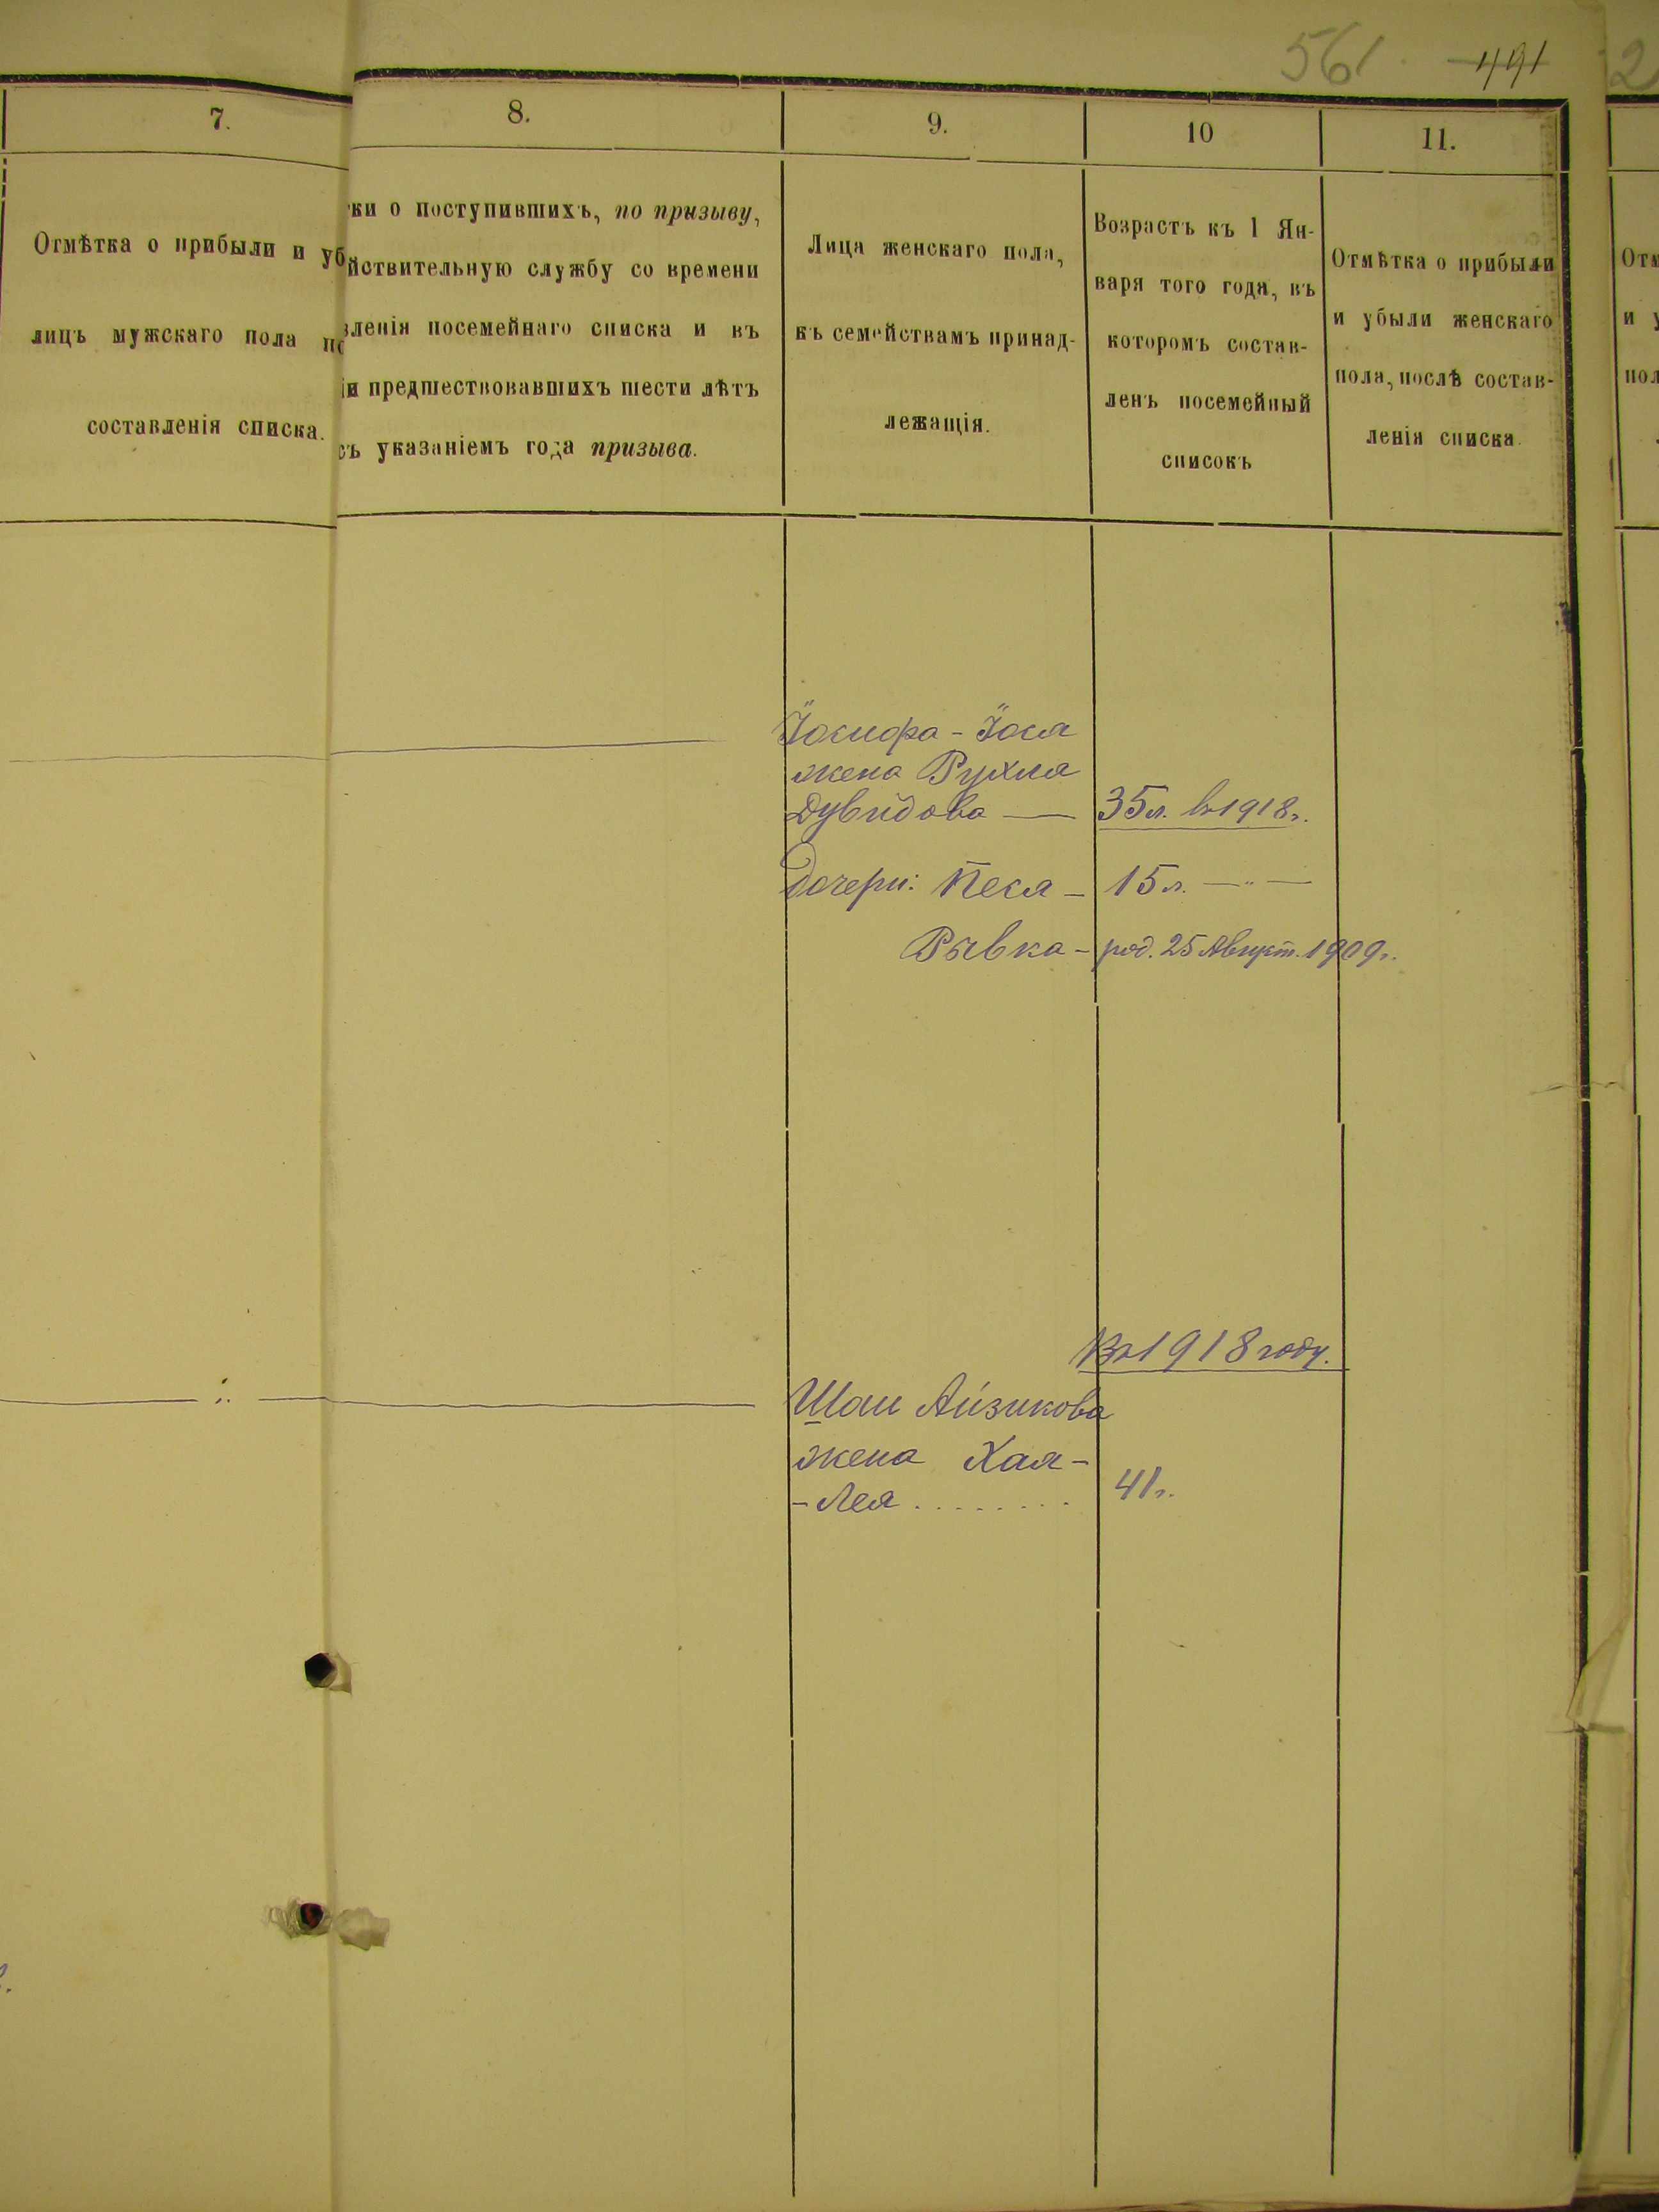 561 491
2
7.
8.
9.
10
11.
Отмѣтка о прибыли и уб
лицъ мужскаго пола по
составленія списка.
тки о поступившихъ, по призыву,
йствительную службу со времени
вленія посемейнаго списка и въ
іи предшествовавшихъ шести лѣтъ
съ указаніемъ года призыва.
Лица женскаго пола,
къ семействамъ принад-
лежащія.
Возрастъ къ 1 Ян-
варя того года, въ
которомъ состав-
ленъ посемейный
списокъ
Отмѣтка о прибыли
и убыли женскаго
пола, послѣ состав-
ленія списка.
Отм
и у
пол
Іосифа - Іося
жена Рухля
Дувидова — 35 л. въ 1918 г.
дочери: Песя - 15 л. —„—
Рывка - род. 25 Август. 1909 г.
Въ 1918 году.
Шаи Айзикова
жена Хая-
-Лея ........ 41 г.